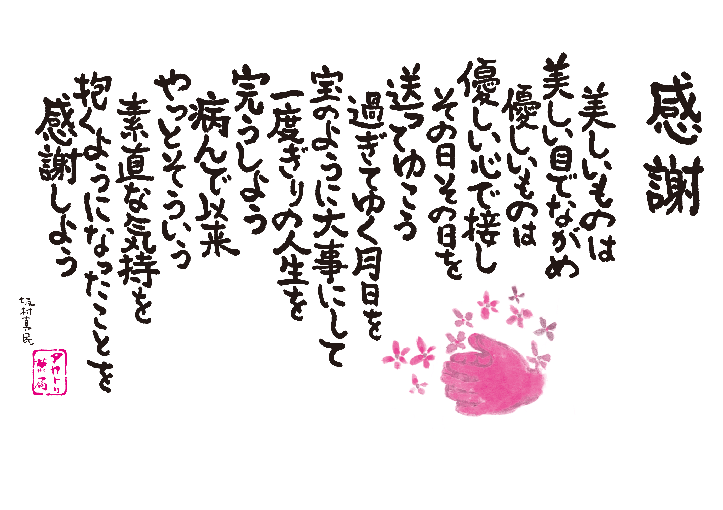 感謝
美しいものは
美しい目でながめ
優しいものは
優しい心で接し
その日その日を
送ってゆこう
過ぎてゆく月日を
宝のように大事にして
一度ぎりの人生を
完うしよう
病んで以来
やっとそういう
素直な気持を
抱くようになったことを
感謝しよう
坂村真民